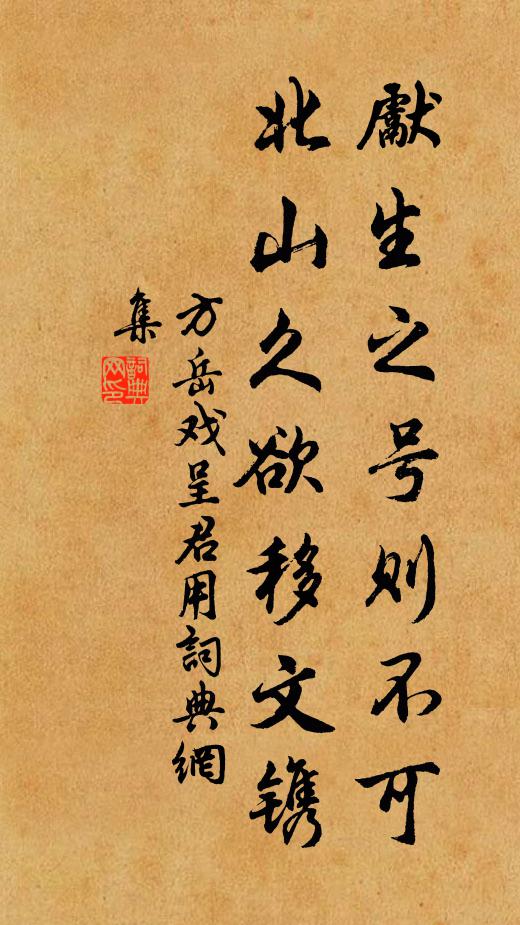 獻生之号则不可
北山久欲移文镌
方岳戏呈君用詞典網
集
詞典网印